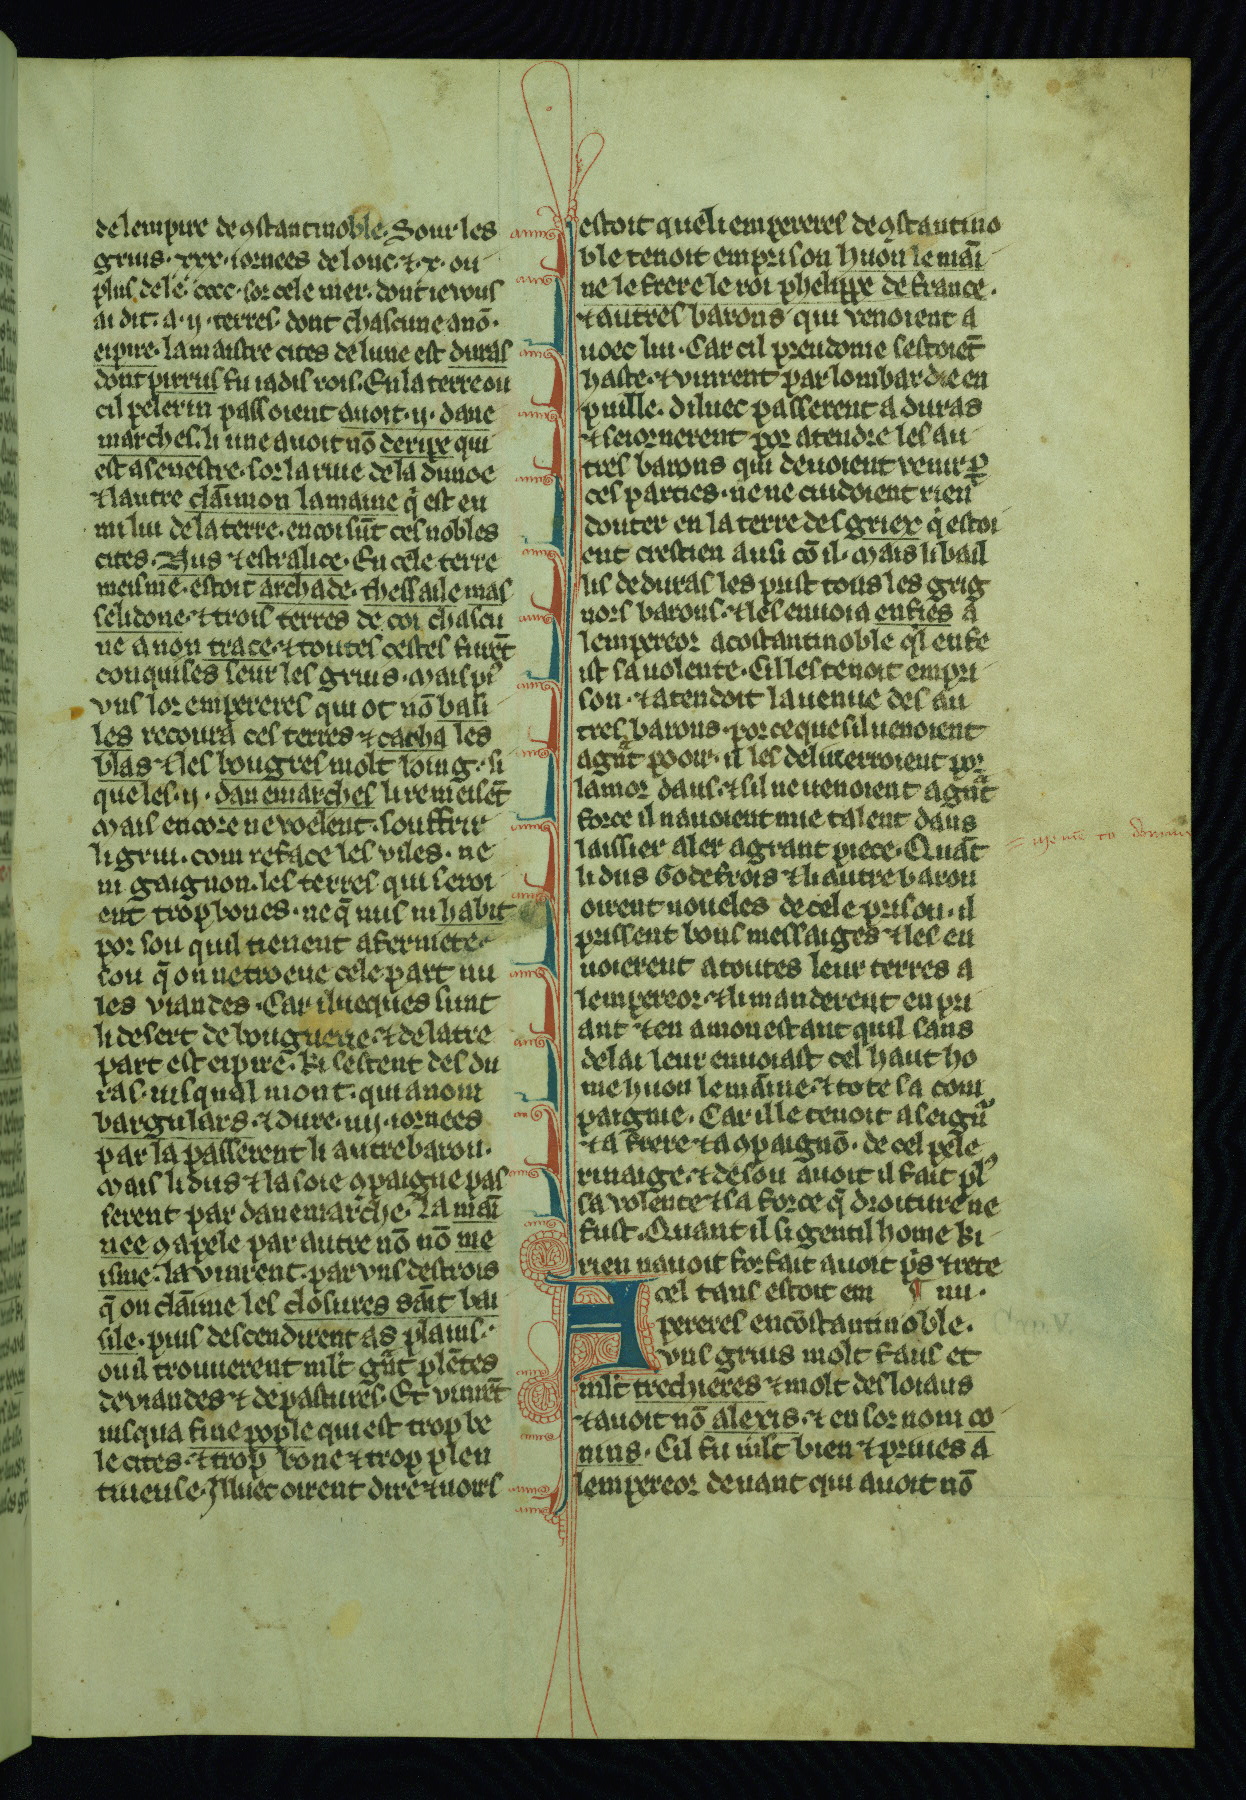 de lempire de ꝯstantinoble. Sour les
grius. xxx. iornees de lonc. ⁊. x. ou
plus de le. cccc. sor cele mer. dont ie vous
ai dit. a. ij. terres. dont chascune a nō.
eipire. la maistre cites de lune est duras
dont pirrus fu iadis rois. En la terre ou
cil pelerin passoient auoit. ij. dane
marches. li une auoit nō deripe qui
est a senestre. sor la riue de la dunoe
⁊ lautre claīmon la maiue q̄ est en
mi liu de la terre. en coi sūt ces nobles
cites. Nus ⁊ estralice. En cele terre
meisme. estoit archade. thessaile mas
selidone. ⁊ trois terres de coi chascu
ne a non trace. ⁊ toutes cestes furēt
conquises seur les grius. Mais pꝰ
vns lor empereres qui ot nō basi
les recoura ces terres ⁊ cacha les
blas ⁊ les bougres molt loing. si
que les. ij. danemarches li remeisēt
Mais encore ne voelent. souffrir
li griu. com reface les viles. ne
ni gaignon. les terres qui seroi
ent trop bones. ne q̄ nus ni habit
por sou quil tienent a fermete.
cou q̄ on ne troeue cele part nu
les viandes. Car iluecques sunt
li desert de bouguerie. ⁊ de latre
part est eipire. Ki sestent des du
ras. iusqual mont. qui a nom
bargulars. ⁊ dure. iiij. iornees
par la passerent li autre baron.
Mais li dus ⁊ la soie ꝯpaigne pas
serent par danemarche. La mai
nee ꝯ apele par autre nō nō me
isme. la vinrent. par vns destrois
q̄ on claīme les closures saīt bai
sile. puis descendirent as plains.
ou il trouuerent mlt grāt plētes
de viandes ⁊ de pastures. Et vinrēt
iusqua fine pople qui est trop be
le cites. ⁊ trop bone ⁊ trop plen
tiueuse. Illuec oirent dire ⁊ uoirs
estoit que li empereres de ꝯstantino
ble tenoit em prison huon le mai
ne le frere le roi phelippe de france.
⁊ autres barons qui venoient a
uoec lui. Car cil preudome sestoiēt
haste. ⁊ vinrent par lombardie en
puille. diluec passerent a duras
⁊ seiornerent por atendre les au
tres barons qui deuoient venir ꝑ
ces parties. ne ne cuidoient rien
douter en la terre des griex q̄ estoi
ent crestien ausi cō il. Mais li bail
lis de duras les prist tous les grig
nors barons. ⁊ les enuoia enfies a
lempereor a costantinoble qͥl en fe
ist sa uolente. Cil les tenoit em pri
son. ⁊ atendoit la uenue des au
tres barons. por ce que sil uenoient
a grāt pooir. il les deliuerroient por
lamor daus. ⁊ sil ne uenoient a grāt
force il nauoient mie talent daus
laissier aler a grant piece. Quāt
li dus Godefrois ⁊ li autre baron
oirent noueles de cele prison. il
prissent bons messaiges ⁊ les en
uoierent a toutes leur terres a
lempereor. ⁊ li manderent en pri
ant ⁊ en amonestant quil sans
delai leur enuoiast cel haut ho
me huon le maīne. ⁊ tote sa com
paignie. Car ille tenoit a seignr̄
⁊ a frere ⁊ a ꝯpaignō. de cel pele
rinaige. ⁊ de sou auoit il fait plꝰ
sa volente ⁊ sa force q̄ droiture ne
fust. Quant il si gentil home ki
rien nauoit forfait auoit pͥs ⁊ rete
A cel tans estoit em ¶ nu.
pereres en cōstantinoble.
vns grius molt faus et
mlt trechieres ⁊ molt desloiaus
⁊ auoit nō alexis. ⁊ en sor nom co
nins. Cil fu mlt bien ⁊ priues a
lempereor deuant qui auoit nō